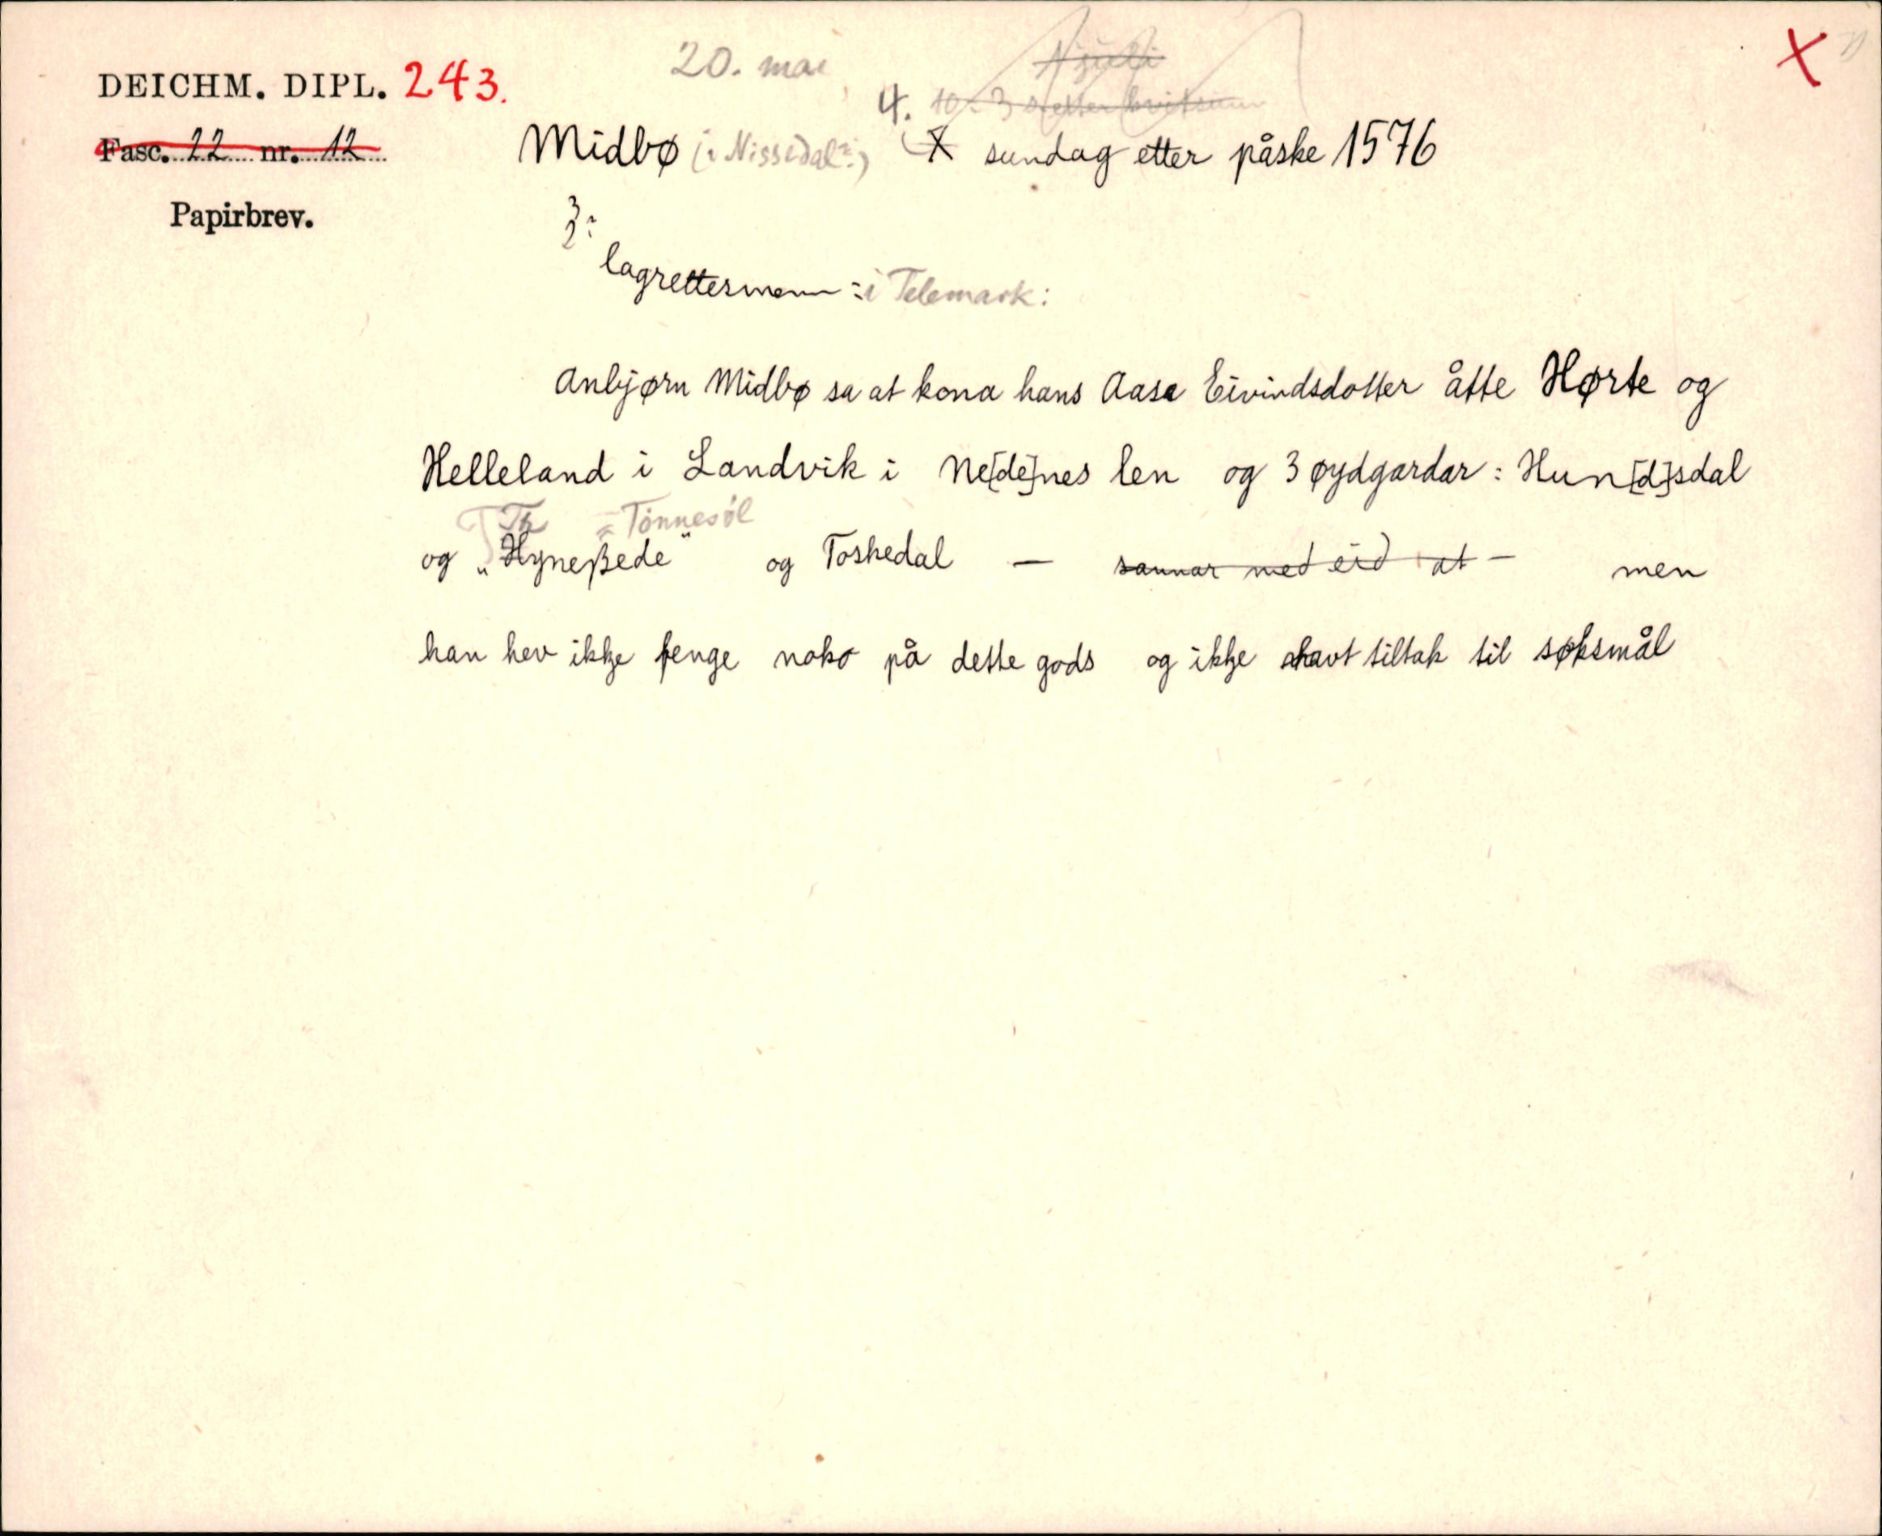 20. mai
DEICHM. DIPL. 243.
4.
Fasc. 22 nr. 12 Midbø (i Nissedal?) X sundag etter påske 1576
Papirbrev.
3
lagrettesmenn i Telemark:
Anbjørn Midbø sa at kona hans Aase Eivindsdotter åtte Hørte og
Helleland i Landvik i Ne[de]nes len og 3 øydgardar: Hun[d]sdal
Th = Tønnesøl
og „Hyneßede" og Toskedal — sannar med eid at — men
han hev ikkje fenge noko på dette gods og ikkje havt tiltak til søksmål